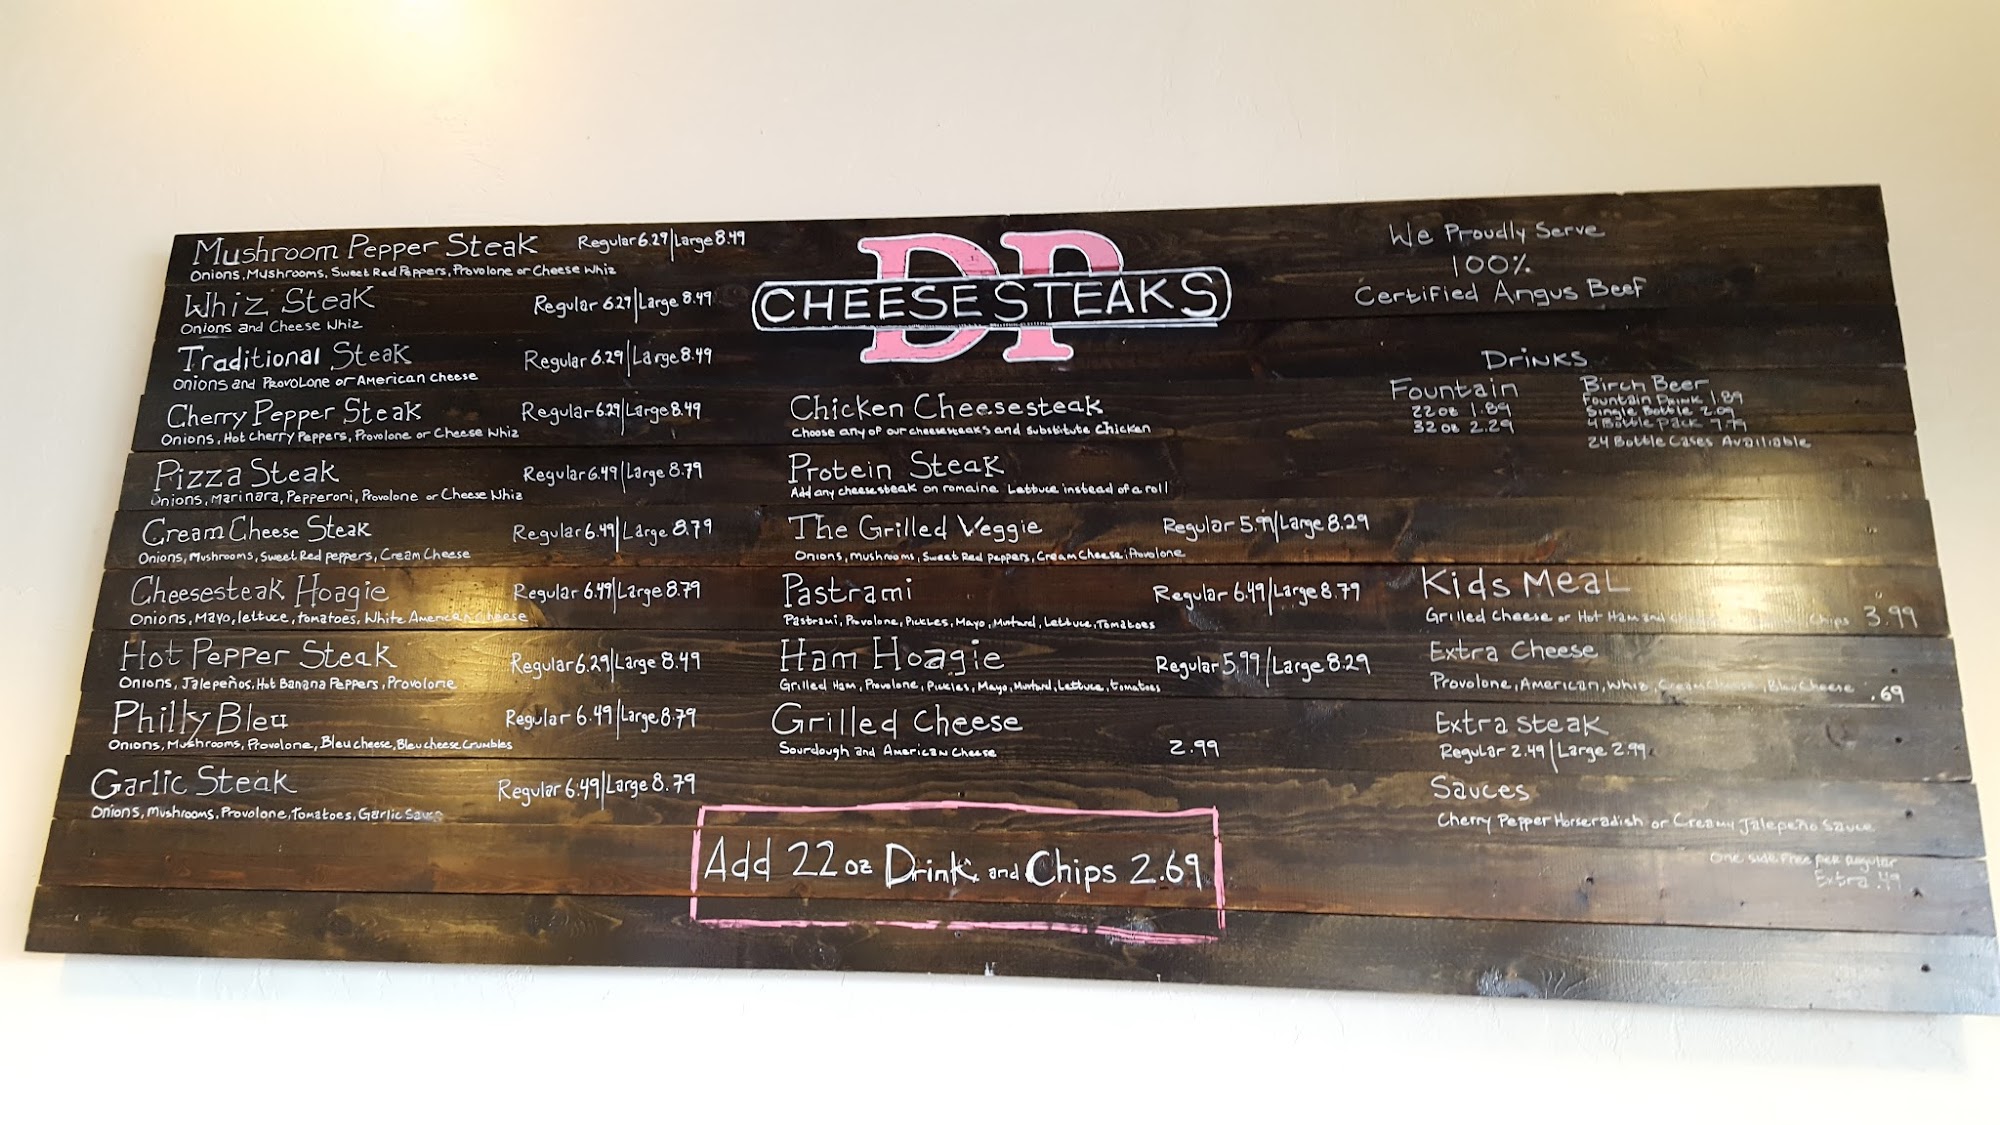 Mushroom Pepper Steak Regular 6.29|Large 8.49
Onions, Mushrooms, Sweet Red Peppers, Provolone or Cheese Whiz
Whiz Steak Regular 6.29|Large 8.49
Onions and Cheese Whiz
Traditional Steak Regular 6.29|Large 8.49
Onions and Provolone or American Cheese
Cherry Pepper Steak Regular 6.29|Large 8.49
Onions, Hot Cherry Peppers, Provolone or Cheese Whiz
Pizza Steak Regular 6.49|Large 8.79
Onions, Marinara, Pepperoni, Provolone or Cheese Whiz
Cream Cheese Steak Regular 6.49|Large 8.79
Onions, Mushrooms, Sweet Red peppers, Cream Cheese
Cheesesteak Hoagie Regular 6.49|Large 8.79
Onions, Mayo, lettuce, tomatoes, White American Cheese
Hot Pepper Steak Regular 6.29|Large 8.49
Onions, Jalepeños, Hot Banana Peppers, Provolone
Philly Bleu Regular 6.49|Large 8.79
Onions, Mushrooms, Provolone, Bleu cheese, Bleu cheese Crumbles
Garlic Steak Regular 6.49|Large 8.79
Onions, Mushrooms, Provolone, Tomatoes, Garlic Sauce
DP
CHEESESTEAKS
Chicken Cheesesteak
Choose any of our cheesesteaks and substitute Chicken
Protein Steak
Add any cheesesteak on romaine Lettuce instead of a roll
The Grilled Veggie Regular 5.99|Large 8.29
Onions, mushrooms, Sweet Red peppers, Cream Cheese, Provolone
Pastrami Regular 6.49|Large 8.79
Pastrami, Provolone, Pickles, Mayo, Mustard, Lettuce, Tomatoes
Ham Hoagie Regular 5.99|Large 8.29
Grilled Ham, Provolone, Pickles, Mayo, Mustard, Lettuce, tomatoes
Grilled Cheese
Sourdough and American Cheese 2.99
Add 22 oz Drink and Chips 2.69
We Proudly Serve
100%
Certified Angus Beef
Drinks
Fountain
22 oz 1.89
32 oz 2.29
Birch Beer
Fountain Drink 1.89
Single Bottle 2.09
4 Bottle Pack 7.79
24 Bottle Cases Availiable
Kids Meal
Grilled Cheese or Hot Ham and Chips 3.99
Extra Cheese
Provolone, American, Whiz, Cream Cheese, Bleu Cheese .69
Extra Steak
Regular 2.49|Large 2.99
Sauces
Cherry Pepper Horseradish or Creamy Jalepeño Sauce
One side Free per Regular
Extra .49